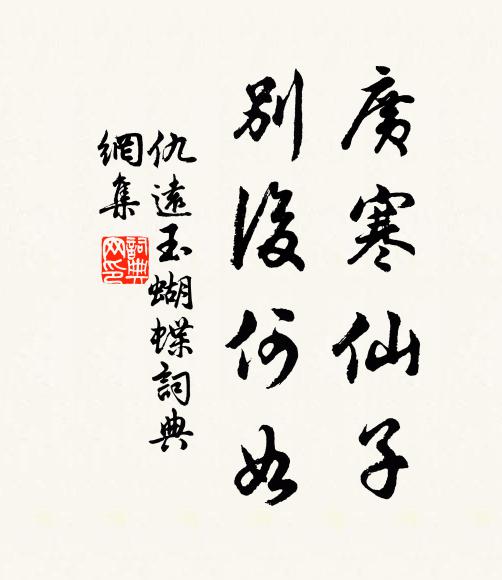 廣寒仙子
別後何如
仇遠玉蝴蝶詞典
網集
詞典
网印